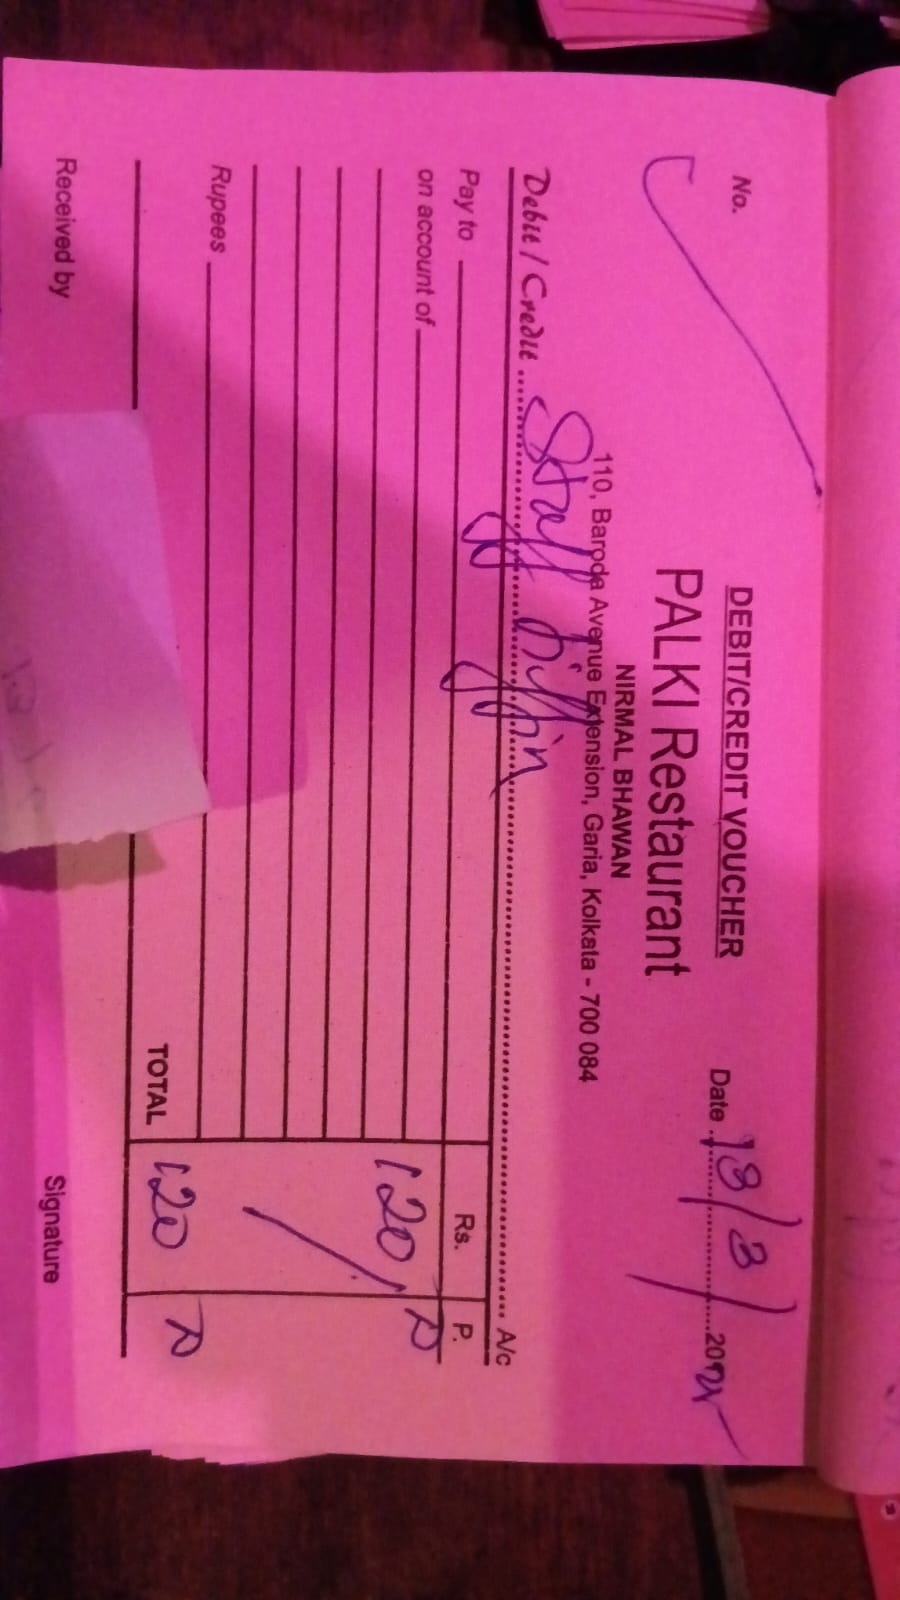 DEBIT/CREDIT VOUCHER
No.
Date 18/3/2024
PALKI Restaurant
NIRMAL BHAWAN
110, Baroda Avenue Extension, Garia, Kolkata - 700 084
Debit / Credit Staff tiffin A/c
Pay to Rs. P.
on account of 120
Rupees
TOTAL 120
Received by Signature